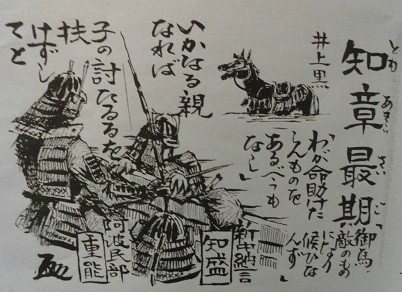 知章最期
とも
あきら
さいご
御馬
敵のも
のになり
候ひな
んず
わが命助けた
らんものを
あるべうも
なし
井上黒
新中納言
知盛
いかなる親
なれば
子の討たるるを
扶
けずし
てと
阿波民部
重能